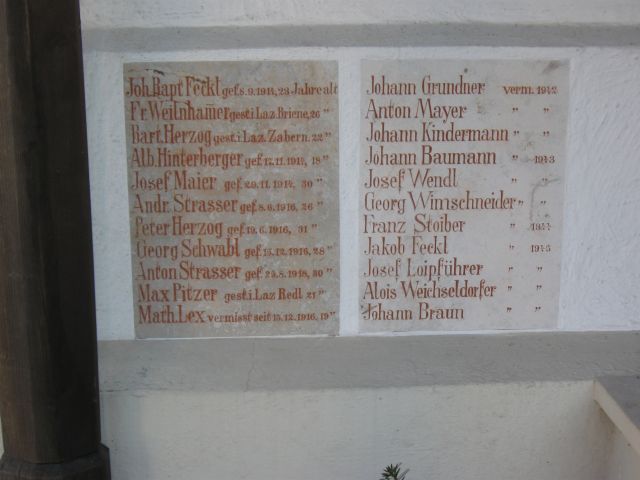 Joh. Bapt. Feckl gef. 8.9.1914, 23 Jahre alt
Fr. Weilnhamer gest. i. Laz. Briene, 26 "
Bart. Herzog gest. i. Laz. Zabern. 22 "
Alb. Hinterberger gef. 12.11.1914, 18 "
Josef Maier gef. 20.11.1914. 30 "
Andr. Strasser gef. 8.6.1916, 26 "
Peter Herzog gef. 19.6.1916, 31 "
Georg Schwabl gef. 15.12.1916, 28 "
Anton Strasser gef. 23.8.1918, 30 "
Max Pitzer gest. i. Laz Redl 21 "
Math. Lex vermisst seit 15.12.1916, 19 "
Johann Grundner verm. 1942
Anton Mayer " "
Johann Kindermann " "
Johann Baumann " 1943
Josef Wendl " "
Georg Wimschneider " "
Franz Stoiber " 1944
Jakob Feckl " 1945
Josef Loipführer " "
Alois Weichseldorfer " "
Johann Braun " "